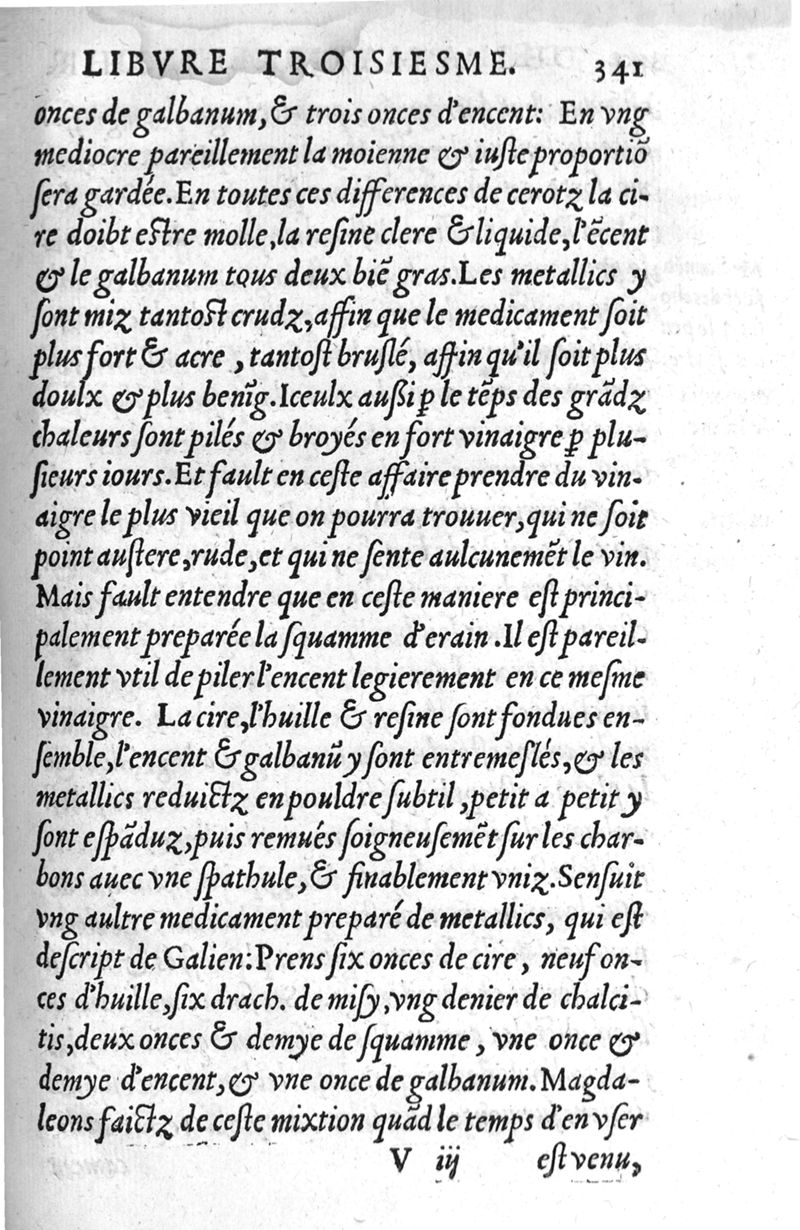 LIBVRE TROISIESME. 341
onces de galbanum, & trois onces d'encent: En vng
mediocre pareillement la moienne & iuſte proportiõ
ſera gardée. En toutes ces differences de cerotz la ci-
re doibt eſtre molle, la reſine clere & liquide, l'ẽcent
& le galbanum tous deux biẽ gras. Les metallics y
ſont miz tantoſt crudz, affin que le medicament ſoit
plus fort & acre, tantoſt bruſlé, affin qu'il ſoit plus
doulx & plus benĩg. Iceulx auſsi ꝑ le tẽps des grãdz
chaleurs ſont pilés & broyés en fort vinaigre ꝑ plu-
ſieurs iours. Et fault en ceſte affaire prendre du vin-
aigre le plus vieil que on pourra trouuer, qui ne ſoit
point auſtere, rude, et qui ne ſente aulcunemẽt le vin.
Mais fault entendre que en ceſte maniere eſt princi-
palement preparée la ſquamme d'erain. Il eſt pareil-
lement vtil de piler l'encent legierement en ce meſme
vinaigre. La cire, l'huille & reſine ſont fondues en-
ſemble, l'encent & galbanũ y ſont entremeſlés, & les
metallics reduictz en pouldre ſubtil, petit a petit y
ſont eſpãduz, puis remués ſoigneuſemẽt ſur les char-
bons auec vne ſpathule, & finablement vniz. Senſuit
vng aultre medicament preparé de metallics, qui eſt
deſcript de Galien: Prens ſix onces de cire, neuf on-
ces d'huille, ſix drach. de miſy, vng denier de chalci-
tis, deux onces & demye de ſquamme, vne once &
demye d'encent, & vne once de galbanum. Magda-
leons faictz de ceſte mixtion quãd le temps d'en vſer
V iij eſt venu,